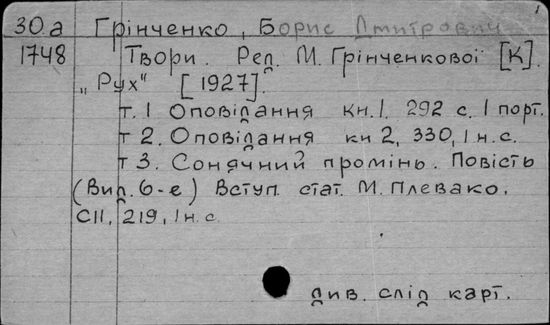 30.а Грінченко, Борис Дмитрович
1748 Твори. Ред. М. Грінченкової [К].
„Рух“ [1927].
т. 1 Оповідання кн. 1. 292 с. 1 порт.
т 2. Оповідання кн 2, 330, 1 н. с.
т 3. Сонячний промінь. Повість
(Вид. 6-е) Вступ. стат. М. Плевако.
CII, 219, 1 н. с.
див. слід карт.